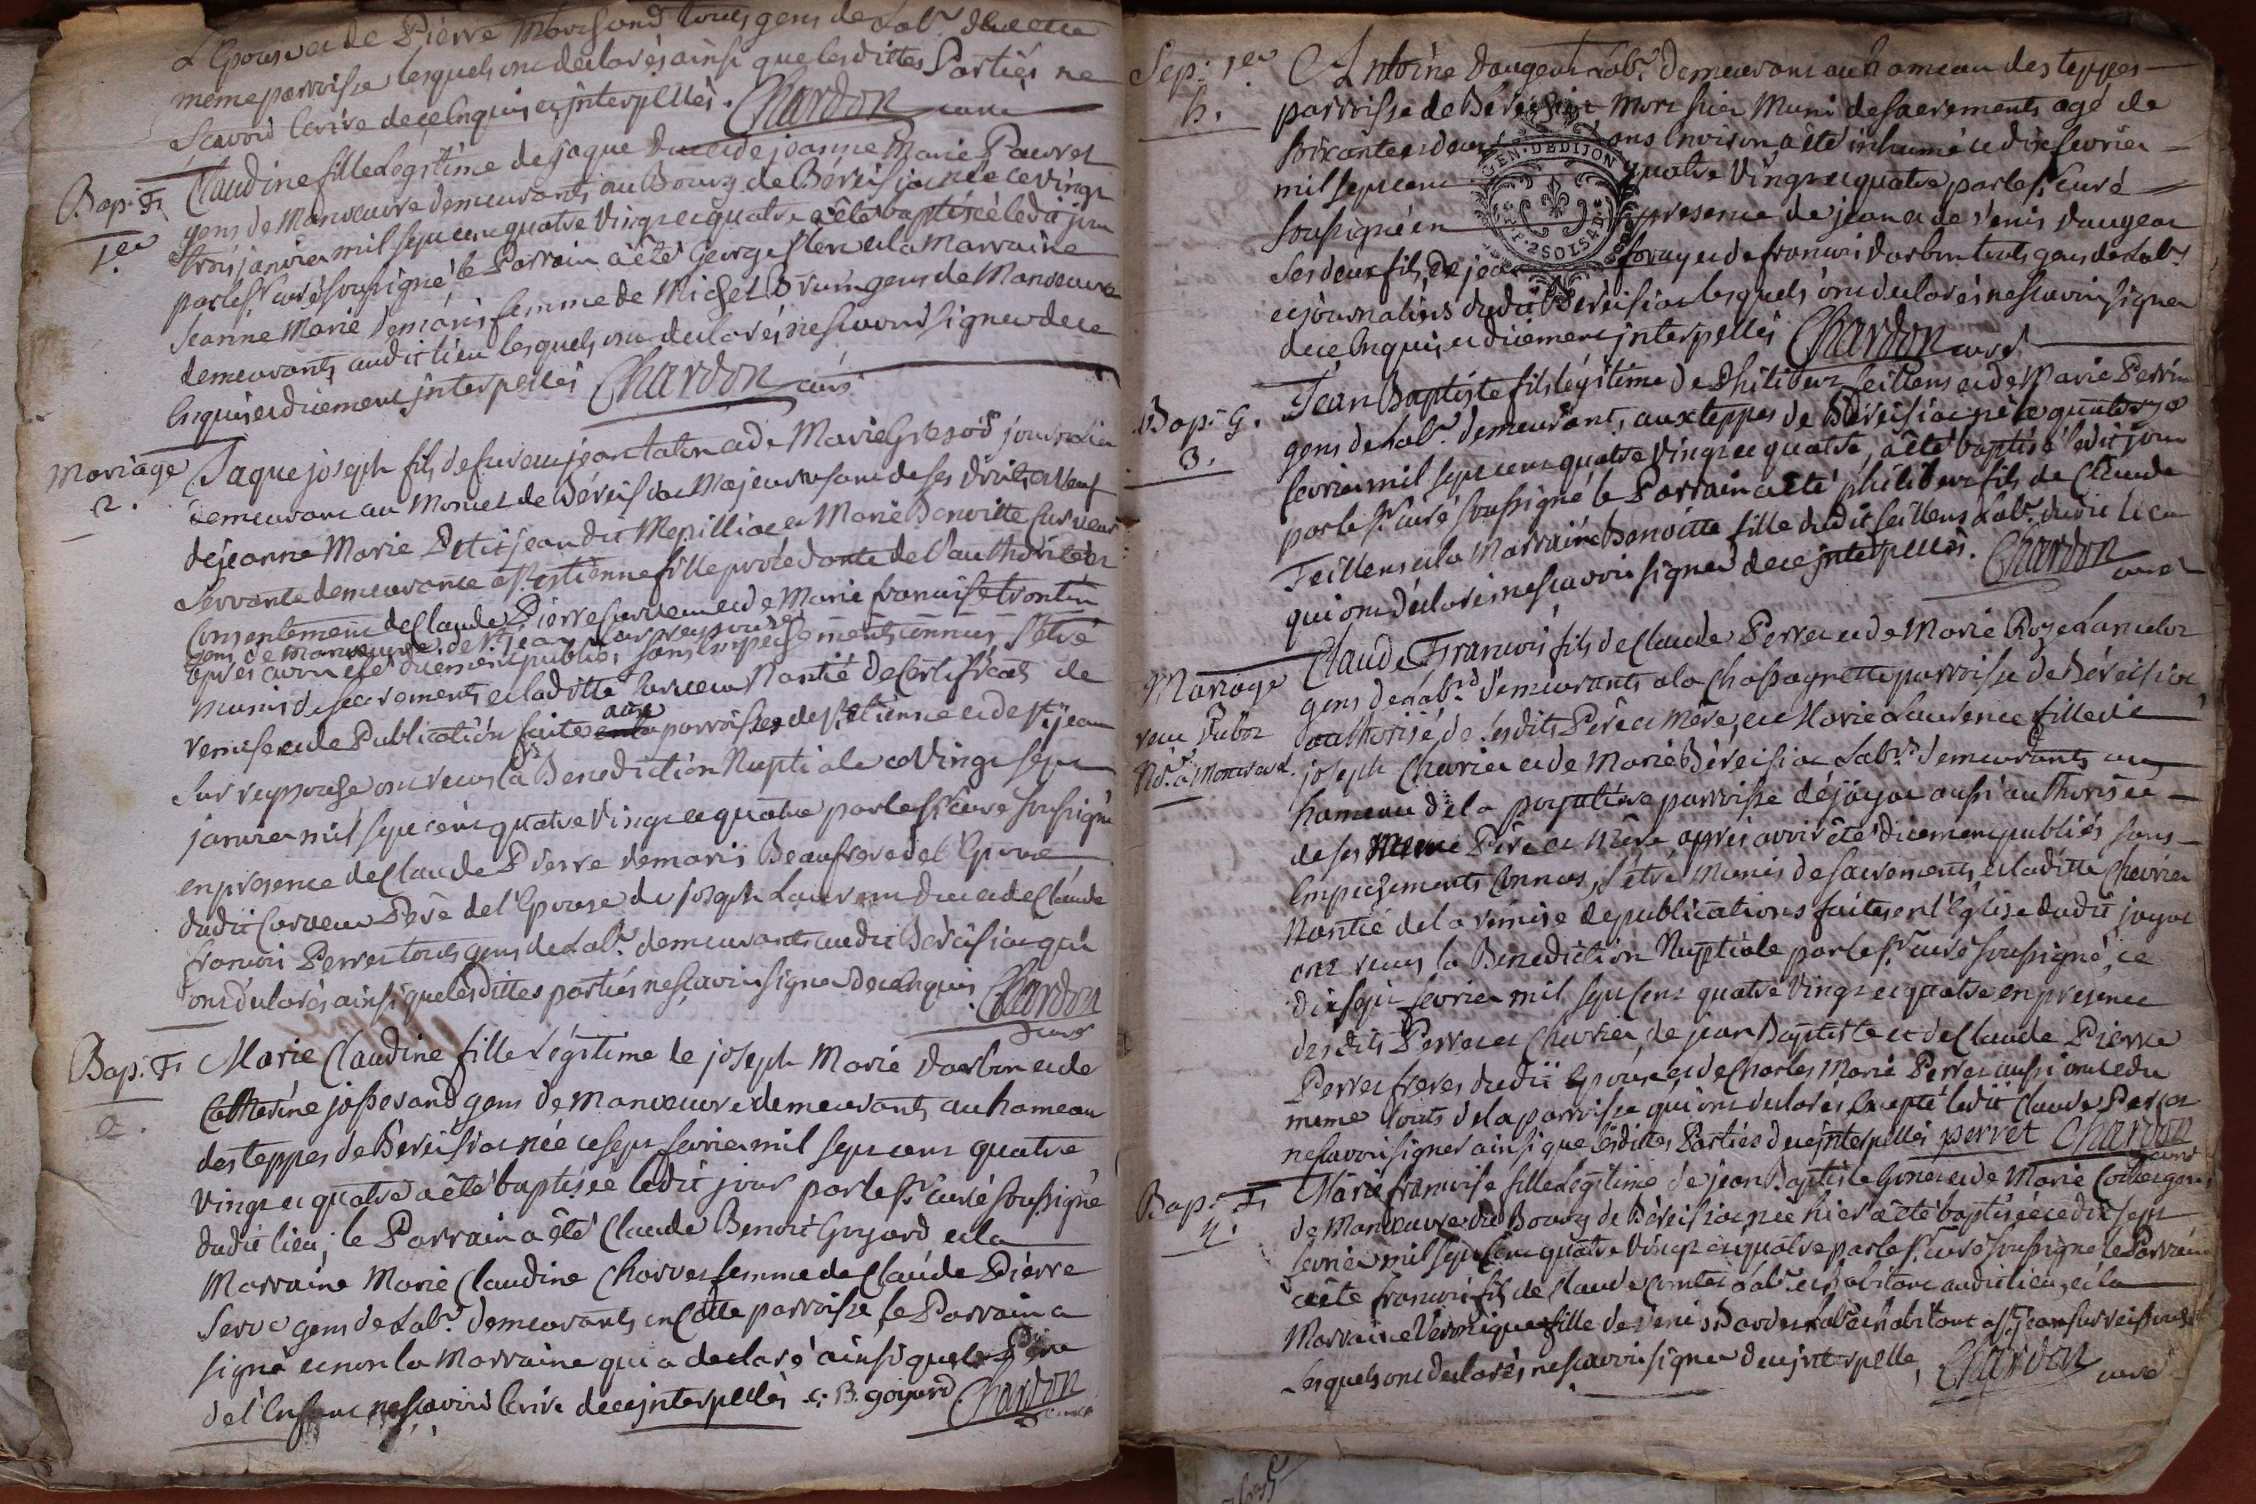 L'Epouse et de Pierre Morisond touts gens de Lab.r de cette
meme parroisse lesquels ont declarés ainsi que lesdittes Parties ne
scavoir Ecrire de ce Enquis et interpellés. Chardon curé
Bap: F. 1.er
Claudine fille Legitime de jaque et de jeanne Marie Pauvret
gens de Manoeuvre demeurants au Bourg de Béreisiat née ce vingt
trois janvier mil sept cent quatre vingt et quatre a été baptisée ledit jour
par le Sr. curé soussigné le Parrain a été George et la Marraine
Jeanne Marie Demaris femme de Michel Brun gens de Manoeuvre
demeurants audit lieu lesquels ont declarés ne scavoir signer de ce
Enquis et duement interpellés Chardon curé
Mariage 2.
Jaque joseph fils de furent jean et de Marie journalier
demeurant au de Béreisiat Majeur usant de ses droits et veuf
de jeanne Marie Petitjean dit Mepilliat et Marie Benoitte Curveur
Servante demeurante a St. etienne fille procedante de l'authorité et
Consentement de Claude Pierre Curveur et de Marie francoise trontin
gens de manoeuvre de St. jean
après avoir été duement publiés sans empechements connus, s'etre
munis de sacrements et laditte Curveur Nantie de Certificats de
remise et de Publication faite aux parroisses de St. etienne et de St. jean
sur reyssouse ont recus la Benediction Nuptiale ce Vingt sept
janvier mil sept cent quatre Vingt et quatre par le Sr. curé soussigné
en presence de Claude Pierre Demaris Beaufrere de l'Epouse
dudit Curveur Père de l'Epouse de joseph Laurent et de Claude
francois Perret touts gens de Lab.r demeurants audit Béréisiat qui
ont déclarés ainsi que lesdittes parties ne scavoir signer de ce enquis Chardon
curé
Bap: F. 2.
Marie Claudine fille Légitime de joseph Marie Darbon et de
Catherine josserand gens de Manoeuvre demeurants au hameau
des teppes de Béreisiat née ce sept fevrier mil sept cent quatre
Vingt et quatre a été baptisée ledit jour par le Sr. curé soussigné
dudit lieu; le Parrain a été Claude Benoit Goyard et la
Marraine Marie Claudine Charvet femme de Claude Pierre
Serve gens de Lab.r demeurants en Cette parroisse, le Parrain a
signé et non la Marraine qui a declaré ainsi que le Père
de l'Enfant ne scavoir Ecrire de ce interpellés c. B. goyard Chardon
curé
Sep: 1.er h.
Antoine Daugeat Lab.r demeurant au hameau des teppes
parroisse de Béreisiat Mort hier Muni de sacrements agé de
soixante et deux ans Environ a été inhumé ce dix fevrier
mil sept cent quatre Vingt et quatre par le Sr. curé
soussigné en presence de jean et de Denis Daugeat
ses deux fils, de jean et de francois Darbon touts gens de Lab.r
et journaliers dudit Béreisiat lesquels ont declarés ne scavoir signer
de ce Enquis et duement interpellés Chardon curé
GEN. DE DIJON
P. 2 SOLS 4 D
Bap: G. 3.
Jean Baptiste fils légitime de Philibert feillens et de Marie Perrin
gens de Lab.r demeurants aux teppes de Béréisiat né le quatorze
fevrier mil sept cent quatre Vingt et quatre, a été baptisé ledit jour
par le Sr. curé soussigné le Parrain a été philibert fils de Claude
Feillens et la Marraine Benoitte fille dudit feillens Lab.r dudit lieu
qui ont déclarés ne scavoir signer de ce interpellés. Chardon
curé
Mariage
recu Dubost
Not.e a Montrevel.
Claude Francois fils de Claude Perret et de Marie Roze Lancelot
gens de Lab.r demeurants a la Chassagnette parroisse de Béreisiat
authorisé de sesdits Père et Mère, et Marie Laurence fille de
joseph Chevrier et de Marie Béreisiat Lab.rs demeurants au
hameau de la poyatiere parroisse de jayat aussi authorisée
de ses Père et Mère après avoir été duement publiés sans
Empechements Connus, s'etre Munis de sacrements, et laditte Chevrier
Nantie de la remise de publications faites en l'Eglise dudit jayat
ont recus la Bénediction Nuptiale par le Sr. curé soussigné, ce
dix sept fevrier mil sept Cent quatre Vingt et quatre en presence
desdits Perret et Chevrier, de jean Baptiste et de Claude Pierre
Perret freres dudit Epoux, et de Charles Marie Perret aussi oncle du
meme touts de la parroisse qui ont declarés Excepté ledit Claude Perret
ne scavoir signer ainsi que lesdittes Parties de ce interpellés perret Chardon
curé
Bap: F. 4.
Marie francoise fille Legitime de jean Baptiste et de Marie gens
de Manoeuvre du Bourg de Béreisiat née hier a été baptisée ce dix sept
fevrier mil sept Cent quatre Vingt et quatre par le Sr. curé soussigné le Parrain
a été francois fils de Claude Comtet Lab.r et habitant audit lieu, et la
Marraine Veronique fille de Denis Lab.r et habitant a St. jean sur reissouse
Lesquels ont declarés ne scavoir signer de ce interpellé, Chardon curé